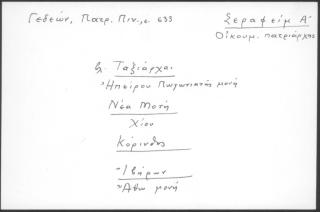 Γεδεών, Πατρ. Πιν., σ. 633
Σεραφείμ Α'
Οἰκουμ. πατριάρχης
βλ. Ταξιάρχαι
Ἠπείρου Πωγωνιατῆς μονή
Νέα Μονή
Χίου
Κόρινθος
Ἰβήρων
Ἄθω μονή